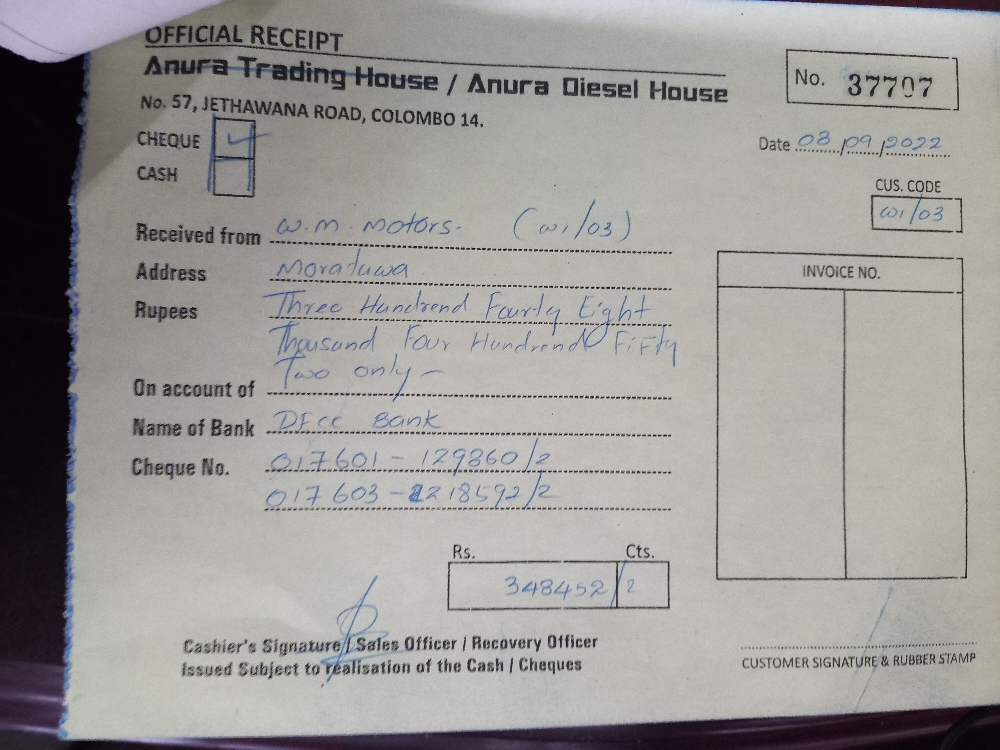 OFFICIAL RECEIPT
Anura Trading House / Anura Diesel House
No. 37707
No. 57, JETHAWANA ROAD, COLOMBO 14.
CHEQUE ✓
CASH
Date 03/09/2022
CUS. CODE
w1/03
Received from W.M. Motors. (w1/03)
Address Moratuwa
Rupees Three Hundrend Fourty Eight
Thousand Four Hundrend Fifty
Two only -
On account of
Name of Bank DFCC Bank
Cheque No. 017601 - 129860/2
017603 - 218592/2
INVOICE NO.
Rs. Cts.
348452/2
Cashier's Signature / Sales Officer / Recovery Officer
Issued Subject to realisation of the Cash / Cheques
CUSTOMER SIGNATURE & RUBBER STAMP